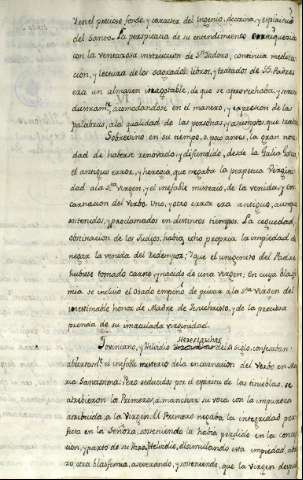 en el precioso fondo, y caracter del ingenio, doctrina, y
del Santo. La perspicacia de su entendimiento enriquecida
con la venerable instruccion de Sn. Isidoro, continua medita-
cion, y lectura de los sagrados libros, y tratados de SS. Padres
era un almacen inagotable, de que se aprovechaba, y
acomodandose en el manexo, y expresion de las
palabras, a la qualidad de las personas, y asumptos que
Sobrevino en su tiempo, o poco antes, la gran nove-
dad de haberse renovado, y difundido, desde la Galia Gotica
el antiguo error, y heregia, que negaba la perpetua Virgini-
dad a la Virgen, y el inefable misterio, de la venida, y En-
carnacion del Verbo Divino, este error era antiguo, aunque
y proclamado en distintos tiempos. La ceguedad,
obstinacion de los Judios, habia echo propria la impiedad de
negar la venida del Redemptor: y que el unigenito del Padre
hubiese tomado carne, y nacido de una Virgen, en cuya blasfe-
mia se incluió el osado empeño de privar a la Virgen del
inestimable honor de Madre de Jesuchristo, y de la preciosa
prenda de su inmaculada virginidad.
Joviniano, y Helvidio heresiarchas de la siglo, confesaban
el inefable misterio de la encarnacion del Verbo en
Maria Santisima: Pero seducidos por el espiritu de las tinieblas, se
atrevieron los Primeros, a manchar su voca con la impureza
atribuida a la Virgen. El Primero negaba la integridad per-
fecta en la Señora, sosteniendo la habia perdido en la concep-
cion, y parto de su Helvidio, disimulando esta impiedad,
otra blasfemia, asegurando, y sosteniendo, que la Virgen